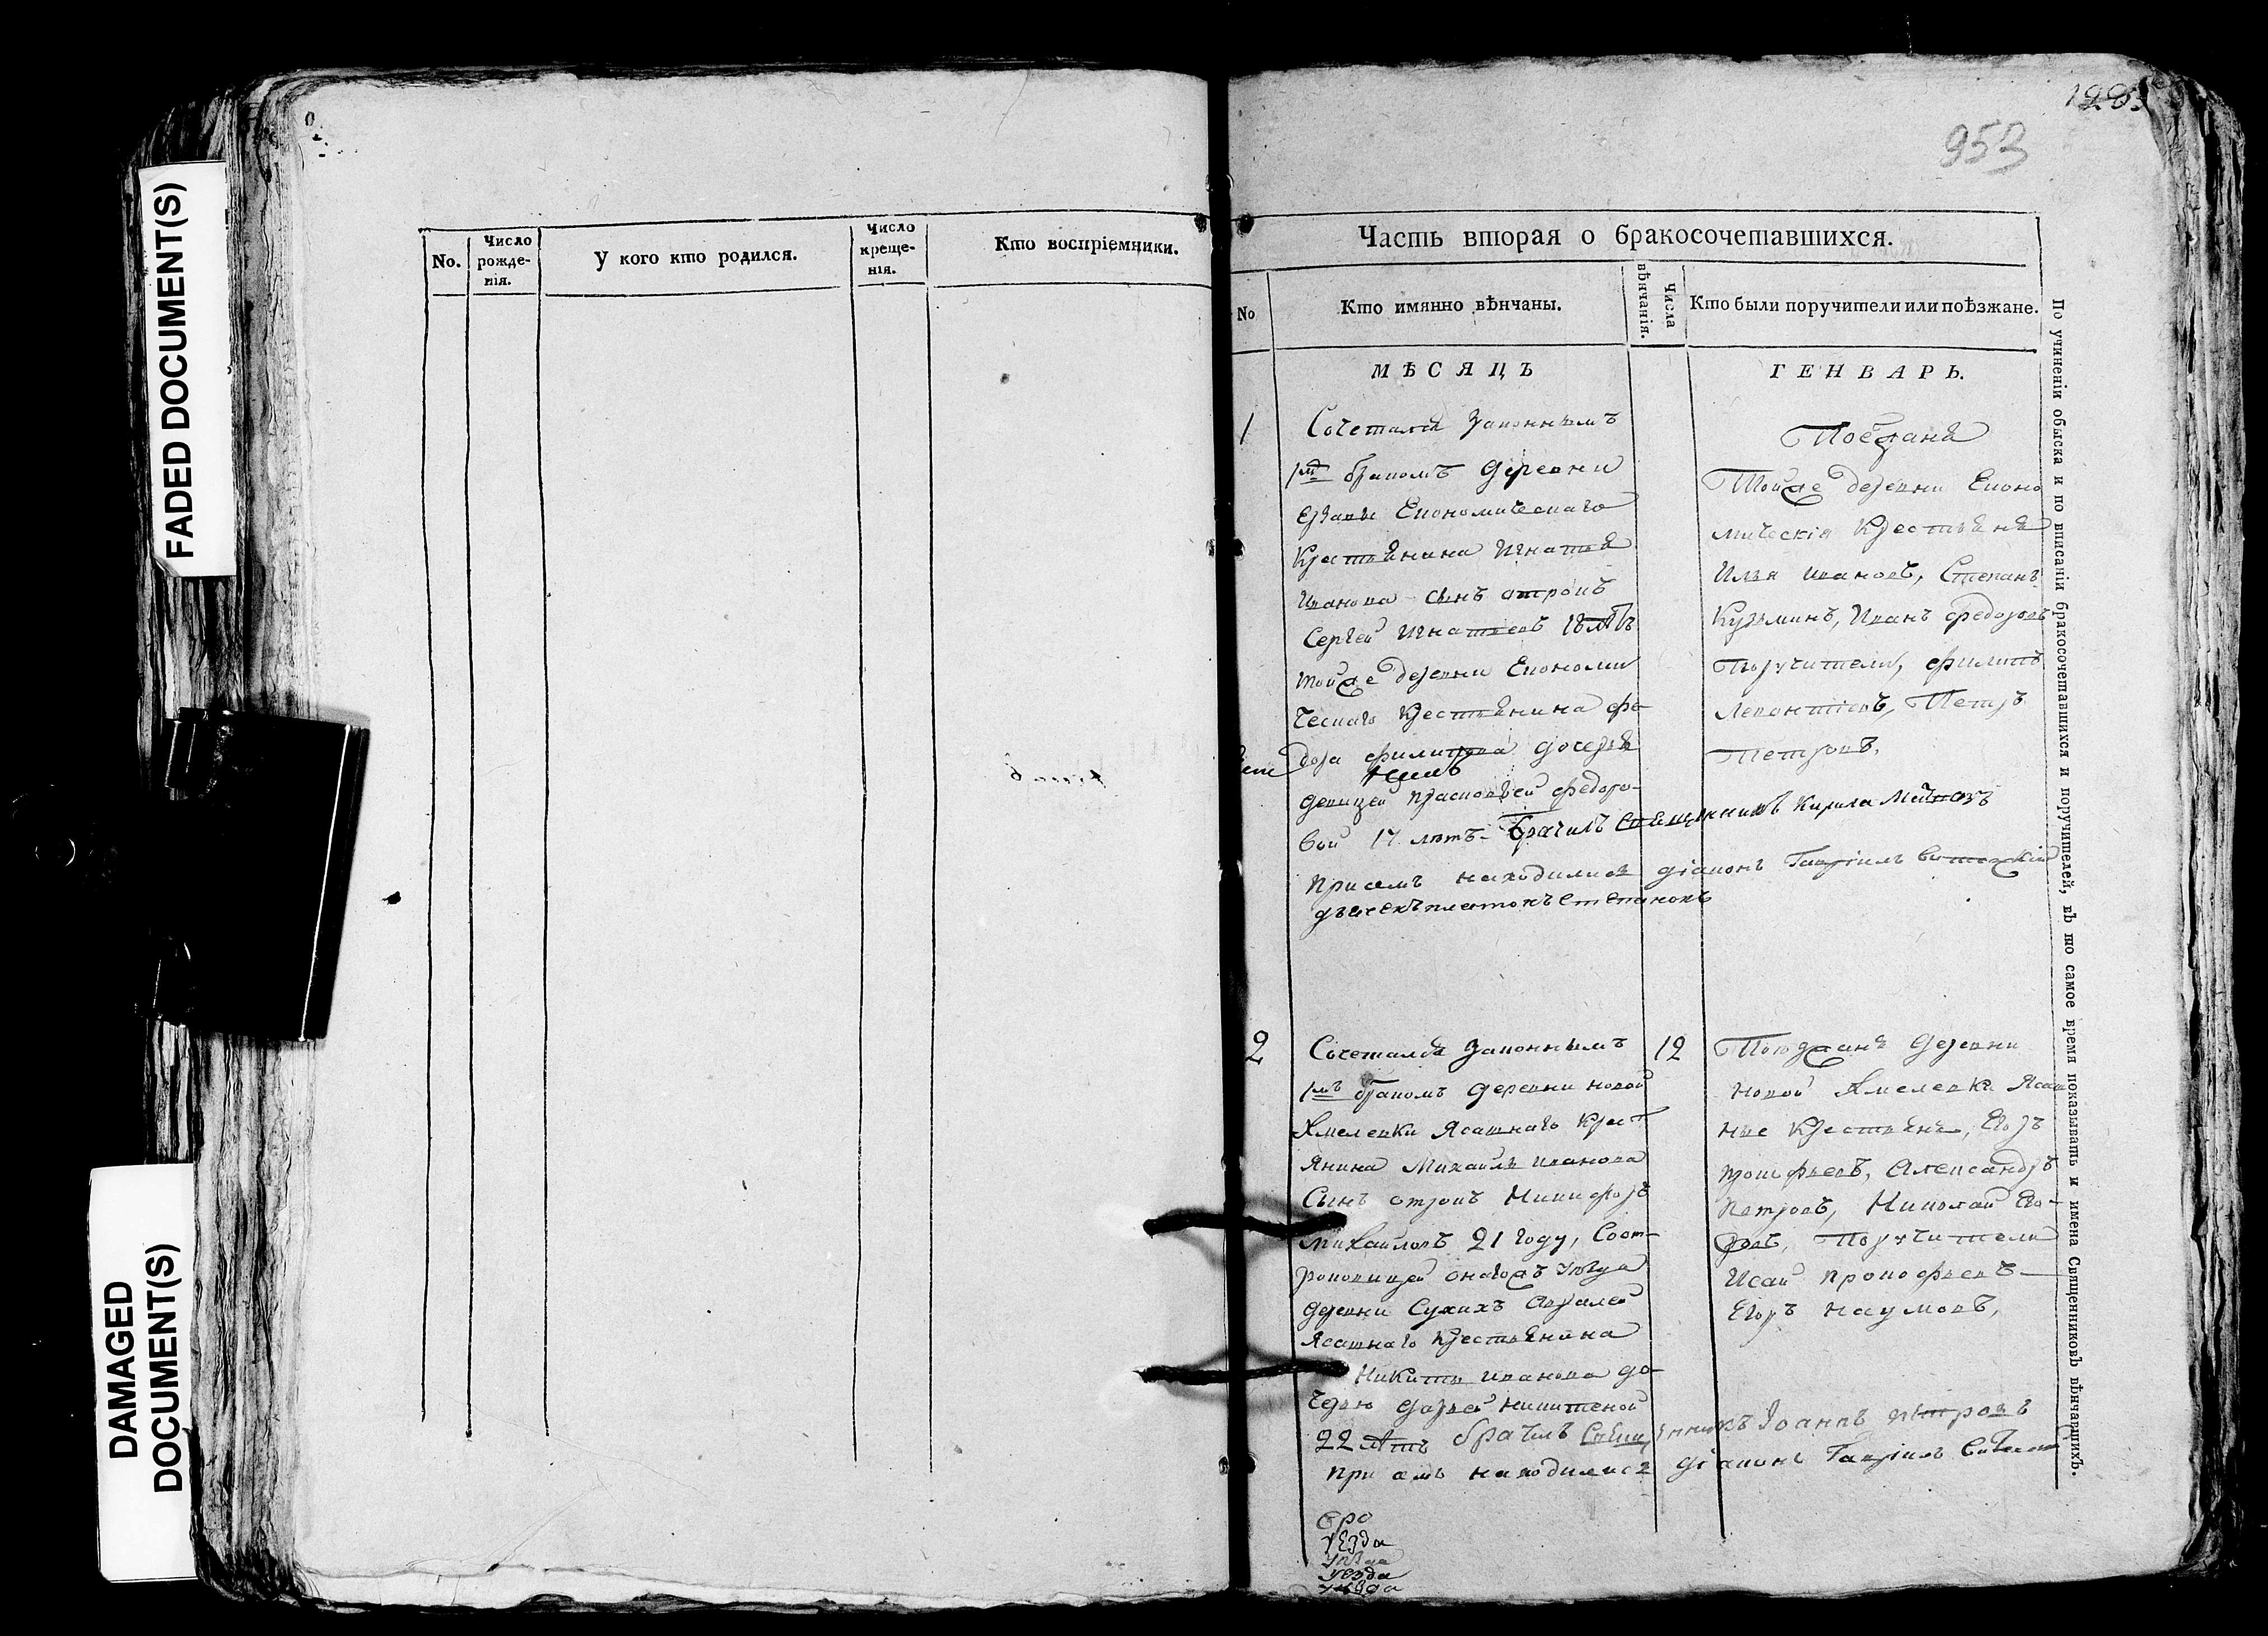 FADED DOCUMENT(S)
DAMAGED
DOCUMENT(S)
No.
Число
рожде-
нія.
У кого кто родился.
Число
креще-
нія.
Кто воспріемники.
953
Часть вторая о бракосочетавшихся.
No
Кто имянно вѣнчаны.
Числа
вѣнчанія.
Кто были поручители или поѣзжане.
МѢСЯЦЪ
ГЕНВАРЬ.
1
Сочетался законнымъ
1мъ бракомъ деревни
Економическаго
Крестьянина Игнатья
Иванова сынъ отрокъ
Сергей Игнатьевъ 18 лѣтъ
тойже деревни Економи
ческаго крестьянина Фе-
дора Филипова дочерью
девицей Прасковьей Федоро-
вой 17 лѣтъ. Брачилъ священникъ Кирила
Присемъ находились діаконъ Гавріилъ
дьячекъ платонъ Степановъ
Поезжанѣ
Тойже деревни Еконо
мическія Крестьянѣ
Илья Ивановъ, Степанъ
Кузьминъ, Иванъ Федоровъ
Поручители, Филипъ
Леконтіевъ, Петръ
Петровъ.
2
Сочетался законнымъ
1мъ бракомъ деревни новой
Хмелевки Ясашнаго Крест
янина Михаила Иванова
Сынъ отрокъ Никифоръ
Михаиловъ 21 году, Сот-
роковицей онагожъ уѣзда
деревни Сухихъ
Ясашнаго крестьянина
Никиты Иванова до-
черью Дарьей Никитеной
22 лѣтъ брачилъ Священникъ Іоаннъ Петровъ
При семъ находились діаконъ Гавріилъ
12
Поезжанѣ деревни
Новой Хмелевки Ясаш
ные Крестьянѣ, Егоръ
Прокофьевъ, Александръ
Петровъ, Николай Его-
ровъ, Поручители
Исай Прокофьевъ
Егоръ Наумовъ,
уезда
уезда
По учиненіи обыска и по вписаніи бракосочетавшихся и поручителей, въ то самое время показывать и имена Священниковъ вѣнчавшихъ.